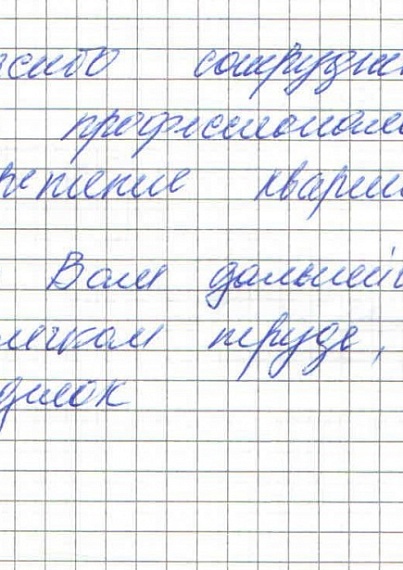 асибо сотрудни
профессионали
решение кварти
Вам дальней
легком труде,
делок